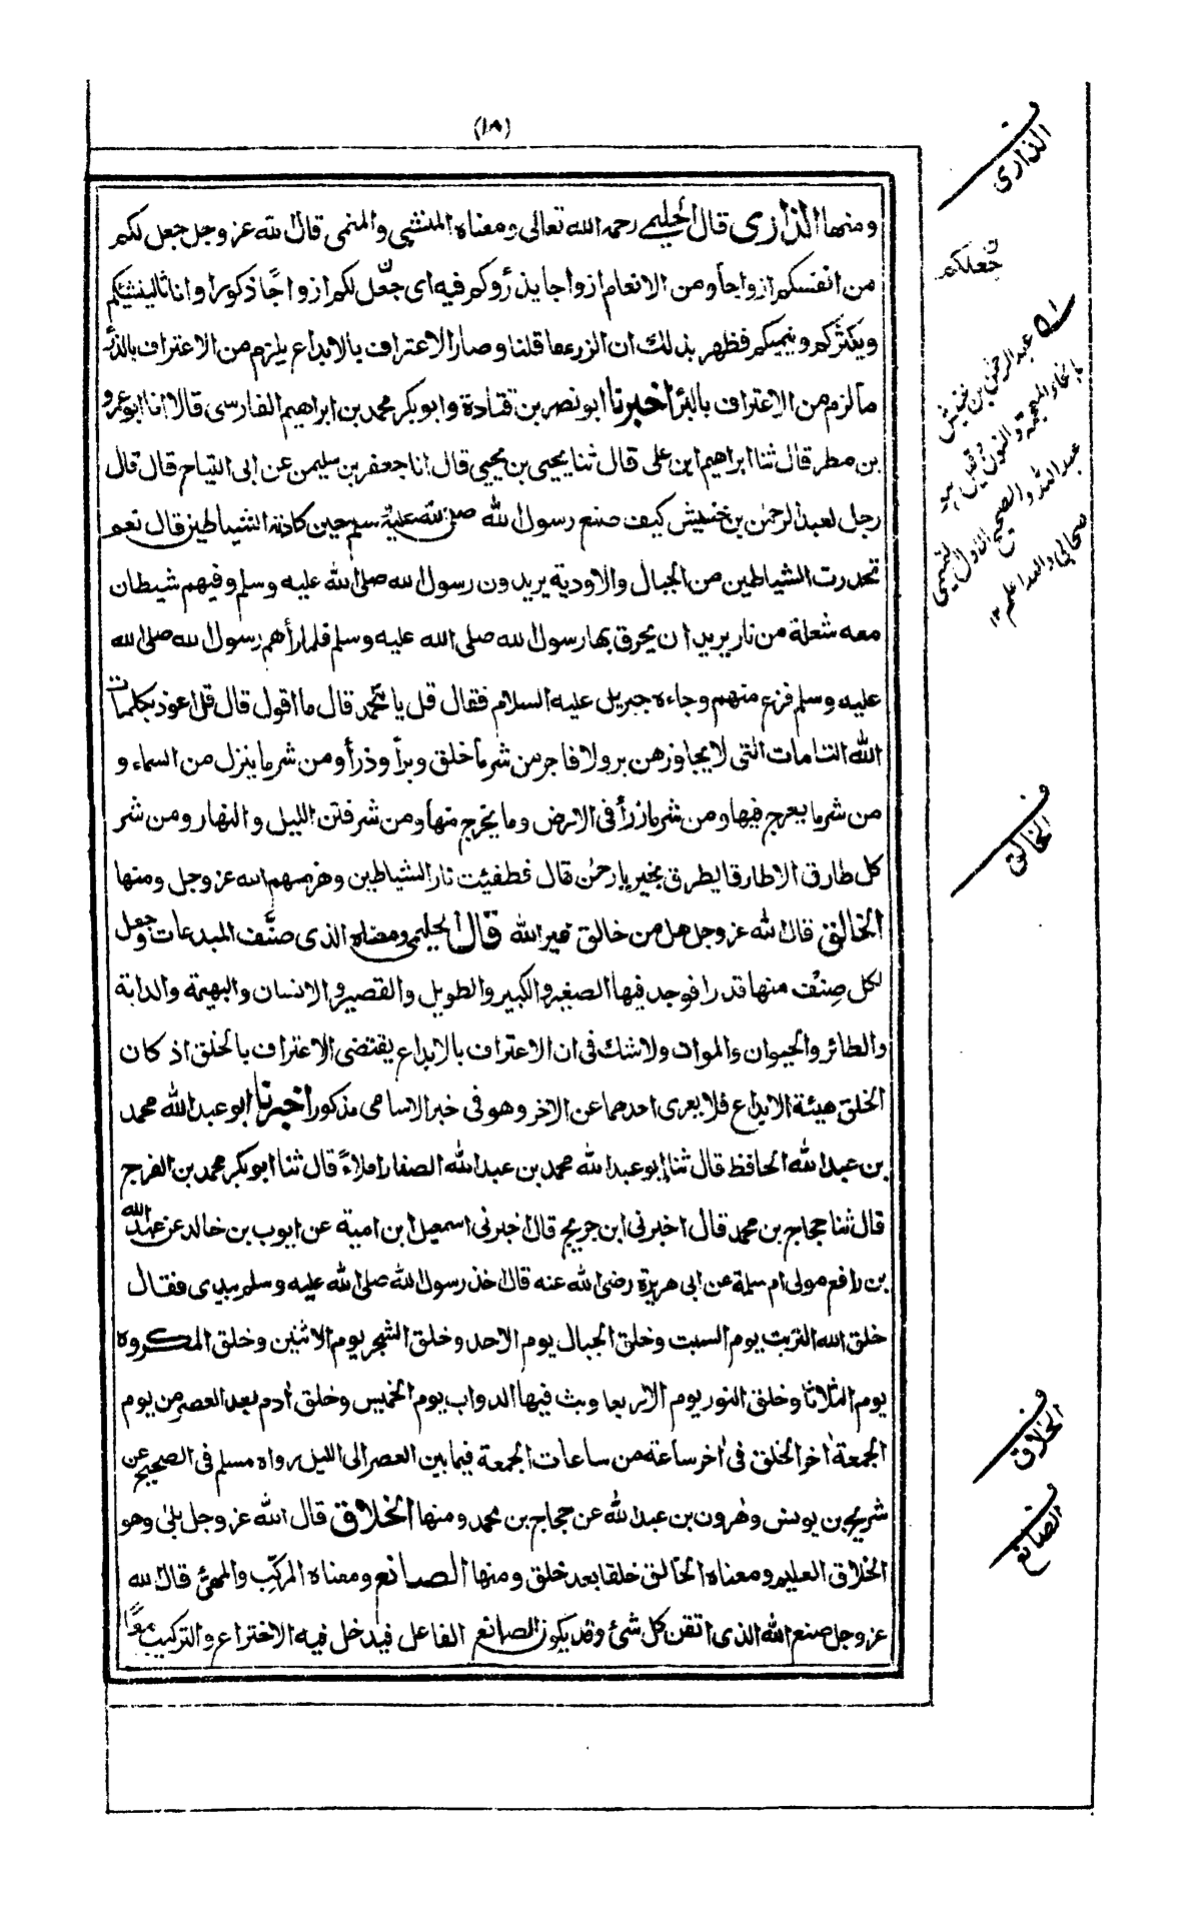 (١٨)
ومنها الذارى قال الحليمى رحمه الله تعالى ومعناه المنشى والمنمى قال الله عز وجل جعل لكم
من انفسكم ازواجا ومن الانعام ازواجا يذرؤكم فيه اى جعل لكم ازواجا ذكورا واناثا لينشئكم
ويكثركم وينميكم فظهر بذلك ان الذرء ما قلنا وصار الاعتراف بالابداع يلزم من الاعتراف بالذرأ
ما لزم من الاعتراف بالبرأ اخبرنا ابو نصر بن قتادة وابو بكر محمد بن ابراهيم الفارسى قالا انا ابو عمرو
بن مطر قال ثنا ابراهيم ابن على قال ثنا يحيى بن يحيى قال انا جعفر بن سليمن عن ابى التياح قال قال
رجل لعبد الرحمٰن بن خنيش كيف صنع رسول الله صلى الله عليه وسلم حين كادته الشياطين قال نعم
تحدرت الشياطين من الجبال والاودية يريدون رسول الله صلى الله عليه وسلم وفيهم شيطان
معه شعلة من نار يريد ان يحرق بها رسول الله صلى الله عليه وسلم فلما رأهم رسول الله صلى الله
عليه وسلم فزع منهم وجاءه جبريل عليه السلام فقال قل يا محمد قال ما اقول قال قل اعوذ بكلمات
الله التامات التى لا يجاوزهن بر ولا فاجر من شر ما خلق وبرأ وذرأ ومن شر ما ينزل من السماء و
من شر ما يعرج فيها ومن شر ما ذرأ فى الارض وما يخرج منها ومن شر فتن الليل والنهار ومن شر
كل طارق الا طارقا يطرق بخير يا رحمٰن قال فطفيئت نار الشياطين وهزمهم الله عز وجل ومنها
الخالق قال الله عز وجل هل من خالق غير الله قال الحليمى ومعناه الذى صنّف المبدعات وجعل
لكل صِنْف منها قدرا فوجد فيها الصغير والكبير والطويل والقصير والانسان والبهيمة والدابة
والطائر والحيوان والموات ولا شك فى ان الاعتراف بالابداع يقتضى الاعتراف بالخلق اذ كان
الخلق هيئة الابداع فلا يعرى احدهما عن الاخر وهو فى خبر الاسامى مذكور اخبرنا ابو عبد الله محمد
بن عبد الله الحافظ قال ثنا ابو عبد الله محمد بن عبد الله الصفار املاءً قال ثنا ابو بكر محمد بن الفرج
قال ثنا حجاج بن محمد قال اخبرنى ابن جريج قال اخبرنى اسمعيل ابن امية عن ايوب بن خالد عن عبد الله
بن رافع مولى ام سلمة عن ابى هريرة رضى الله عنه قال اخذ رسول الله صلى الله عليه وسلم بيدى فقال
خلق الله التربت يوم السبت وخلق الجبال يوم الاحد وخلق الشجر يوم الاثنين وخلق المكروه
يوم الثلاثا وخلق النور يوم الاربعا وبث فيها الدواب يوم الخميس وخلق اٰدم بعد العصر من يوم
الجمعة اٰخر الخلق فى اٰخر ساعة من ساعات الجمعة فيما بين العصر الى الليل رواه مسلم فى الصحيح عن
شريح بن يونس وهٰرون بن عبد الله عن حجاج بن محمد ومنها الخلاق قال الله عز وجل بلىٰ وهو
الخلاق العليم ومعناه الخالق خلقا بعد خلق ومنها الصانع ومعناه المركّب والمهيّ قال الله
عز وجل صنع الله الذى اتقن كل شئ وقد يكون الصانع الفاعل فيدخل فيه الاختراع والتركيب معًا
ف الذارى
جعلكم
عبد الرحمٰن بن خنيش
بالخاء المعجمة والنون
عبد الله والصحيح الاول
صحابى والله اعلم ١٢
ف الخالق
ف الخلاق
ف الصانع